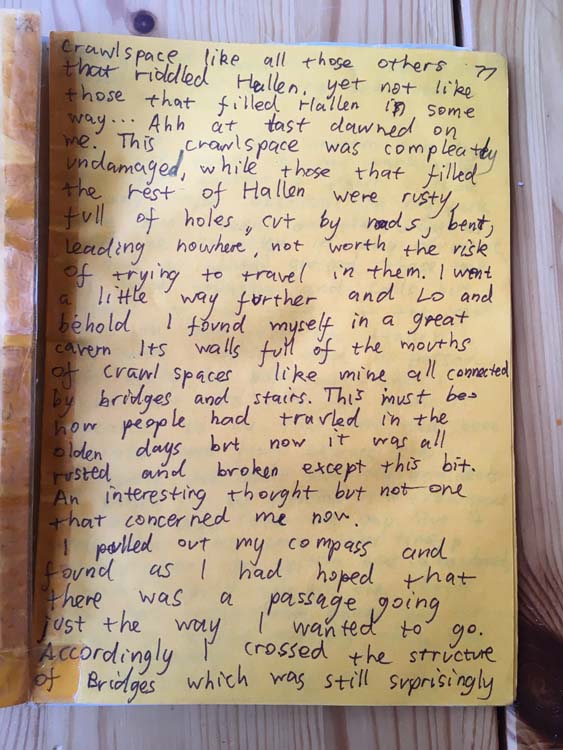 77
crawlspace like all those others
that riddled Hallen, yet not like
those that filled Hallen in some
way... Ahh at last dawned on
me. This crawlspace was compleatly
undamaged, while those that filled
the rest of Hallen were rusty,
full of holes, cut by roads, bent,
leading nowhere, not worth the risk
of trying to travel in them. I went
a little way further and Lo and
behold I found myself in a great
cavern Its walls full of the mouths
of crawl spaces like mine all connected
by bridges and stairs. This must be
how people had travled in the
olden days but now it was all
rusted and broken except this bit.
An interesting thought but not one
that concerned me now.
I pulled out my compass and
found as I had hoped that
there was a passage going
just the way I wanted to go.
Accordingly I crossed the structure
of Bridges which was still surprisingly